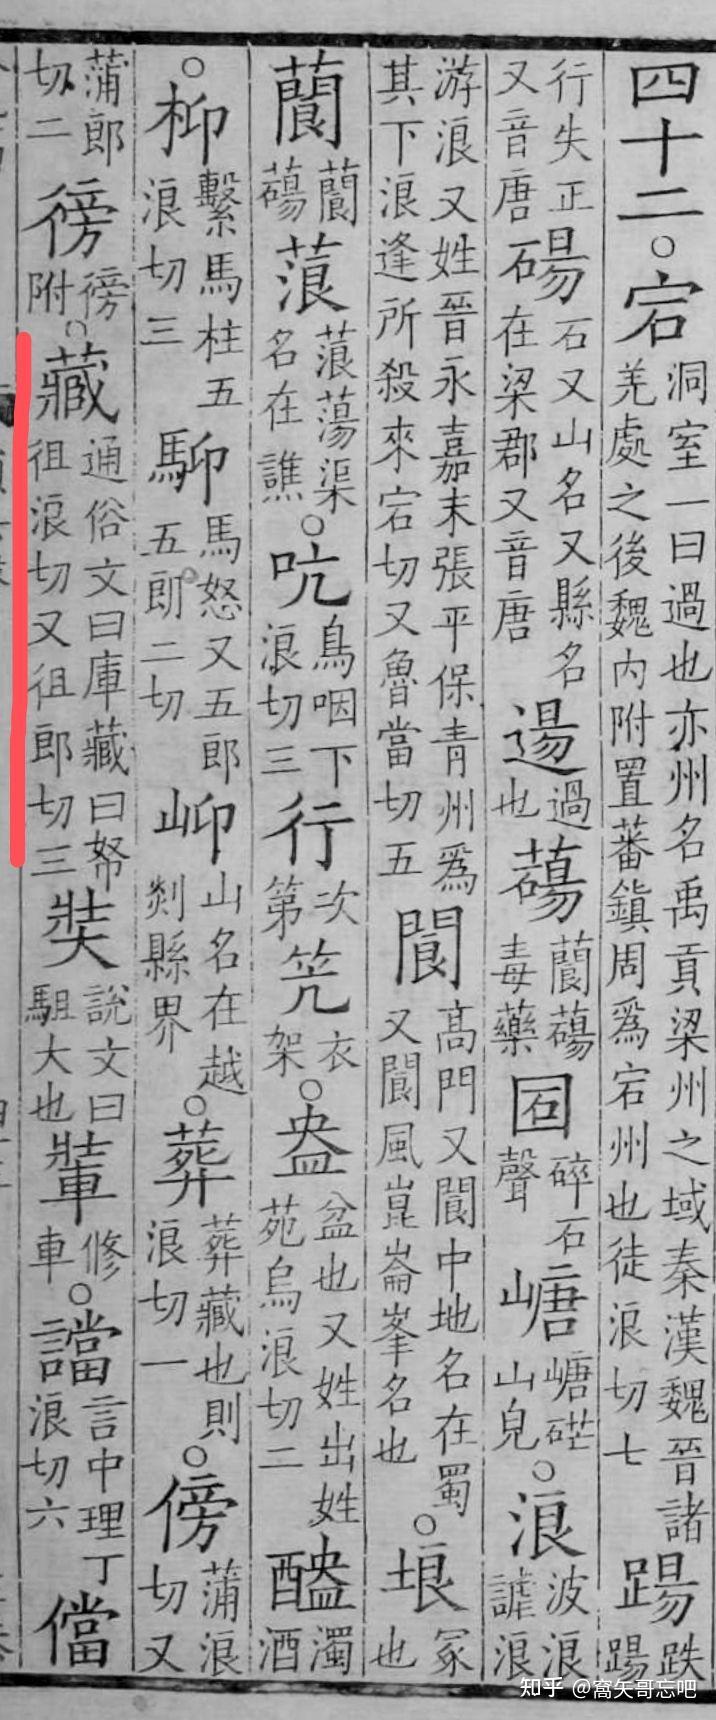 四十二○宕洞室一曰過也亦州名禹貢梁州之域秦漢魏晉諸羌處之後魏內附置蕃鎮周爲宕州也徒浪切七踼跌踼
行失正又音唐碭石又山名又縣名在梁郡又音唐逿過也𦿆䕞𦿆毒藥㘢碎石聲嵣嵣硭山皃○浪波浪謔浪
游浪又姓晉永嘉末張平保青州爲其下浪逢所殺來宕切又魯當切五閬高門又閬中地名在蜀又閬風崑崙峯名也○埌冢也
䕞䕞𦿆蒗蒗蕩渠名在譙○吭鳥咽下浪切三行次第笐衣架○盎盆也又姓出姓苑烏浪切二醠濁酒
○枊繫馬柱五浪切三䭹馬怒又五郎五朗二切𡵙山名在越剡縣界○葬葬藏也則浪切一○傍蒲浪切又
蒲郎切二徬徬附○藏通俗文曰庫藏曰帑徂浪切又徂郎切三奘說文曰駔大也𨌄修車○譡言中理丁浪切六儅
知乎 @窩矢哥忘吧